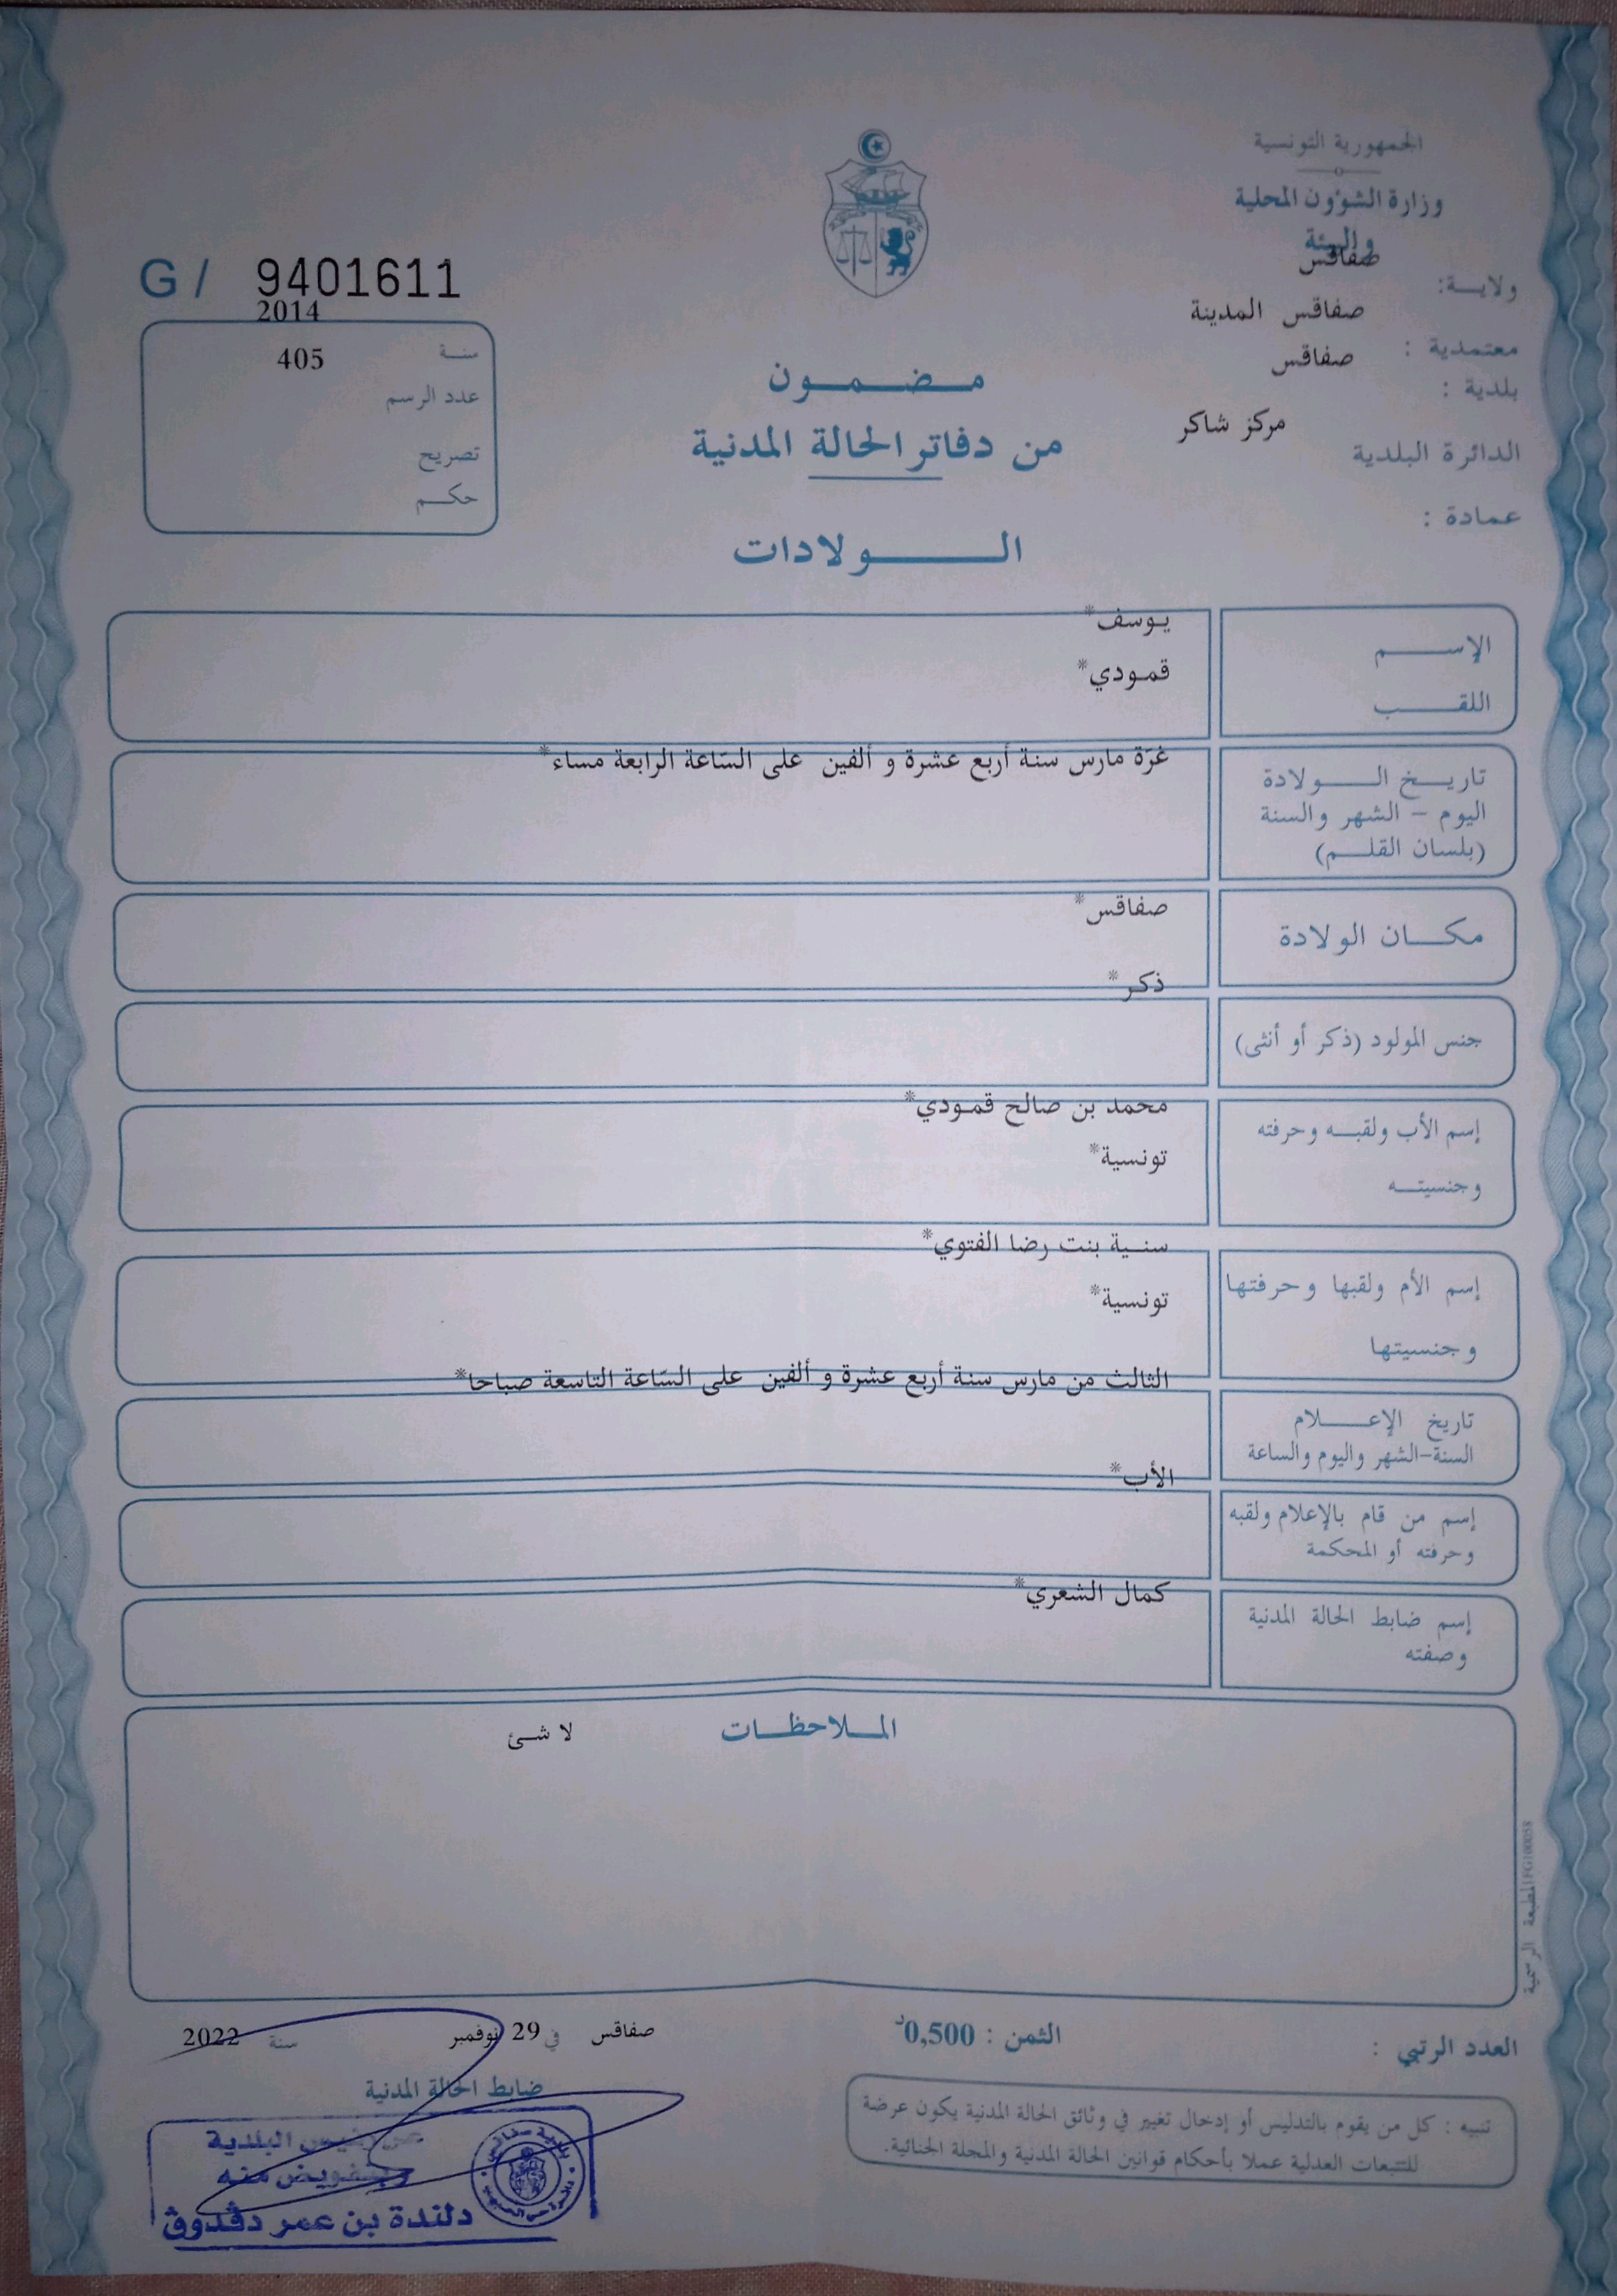 الجمهورية التونسية
وزارة الشؤون المحلية
والبيئة
ولايـــة: صفاقس
معتمدية : صفاقس المدينة
بلدية : صفاقس
الدائرة البلدية مركز شاكر
عمادة :
G / 9401611
سنـــة 2014
عدد الرسم 405
تصريح
حكـــم
مـــضـــمـــون
من دفاتر الحالة المدنية
الـــــولادات
الإســـــم يـوسف*
اللقـــــب قمـودي*
تاريـــخ الـــــولادة غرّة مارس سنة أربع عشرة و ألفين على السّاعة الرابعة مساء*
اليوم - الشهر والسنة
(بلسان القلـــم)
مكـــان الولادة صفاقس*
جنس المولود (ذكر أو أنثى) ذكر*
إسم الأب ولقبـــه وحرفته محمد بن صالح قمـودي*
وجنسيتـــه تونسية*
إسم الأم ولقبها وحرفتها سنـية بنت رضا الفتوي*
وجنسيتها تونسية*
تاريخ الإعـــــلام الثالث من مارس سنة أربع عشرة و ألفين على السّاعة التاسعة صباحا*
السنة-الشهر واليوم والساعة
إسم من قام بالإعلام ولقبه الأب*
وحرفته أو المحكمة
إسم ضابط الحالة المدنية كمال الشعري*
وصفته
المـــلاحظـــات لا شـئ
المطبعة الرسمية
العدد الرتبي :
الثمن : 0,500د
صفاقس في 29 نوفمبر سنة 2022
ضابط الحالة المدنية
تنبيه : كل من يقوم بالتدليس أو إدخال تغيير في وثائق الحالة المدنية يكون عرضة
للتتبعات العدلية عملا بأحكام قوانين الحالة المدنية والمجلة الجنائية.
عن رئيس البلدية
وبتفويض منه
دلندة بن عمر دڨدوڨ